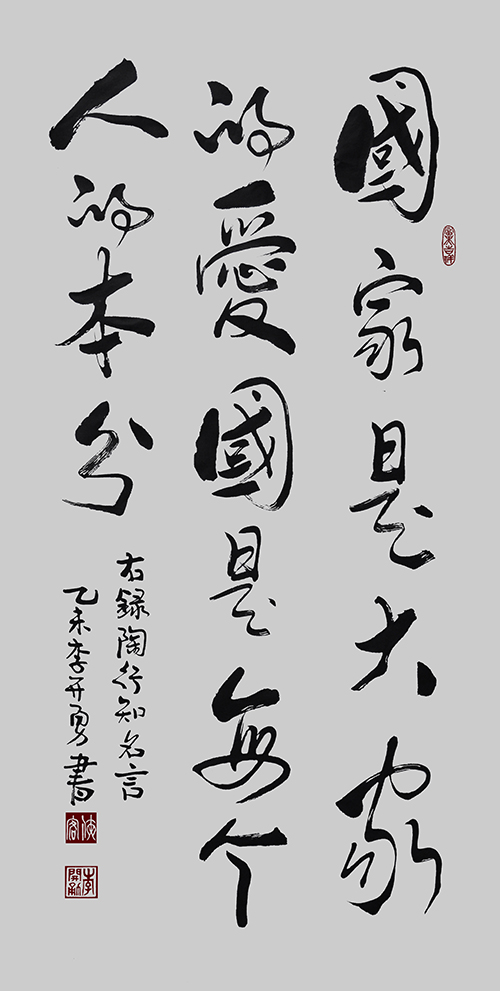 國家是大家
的愛國是每个
人的本分
右録陶行知名言
乙未李开勇書
李開勇